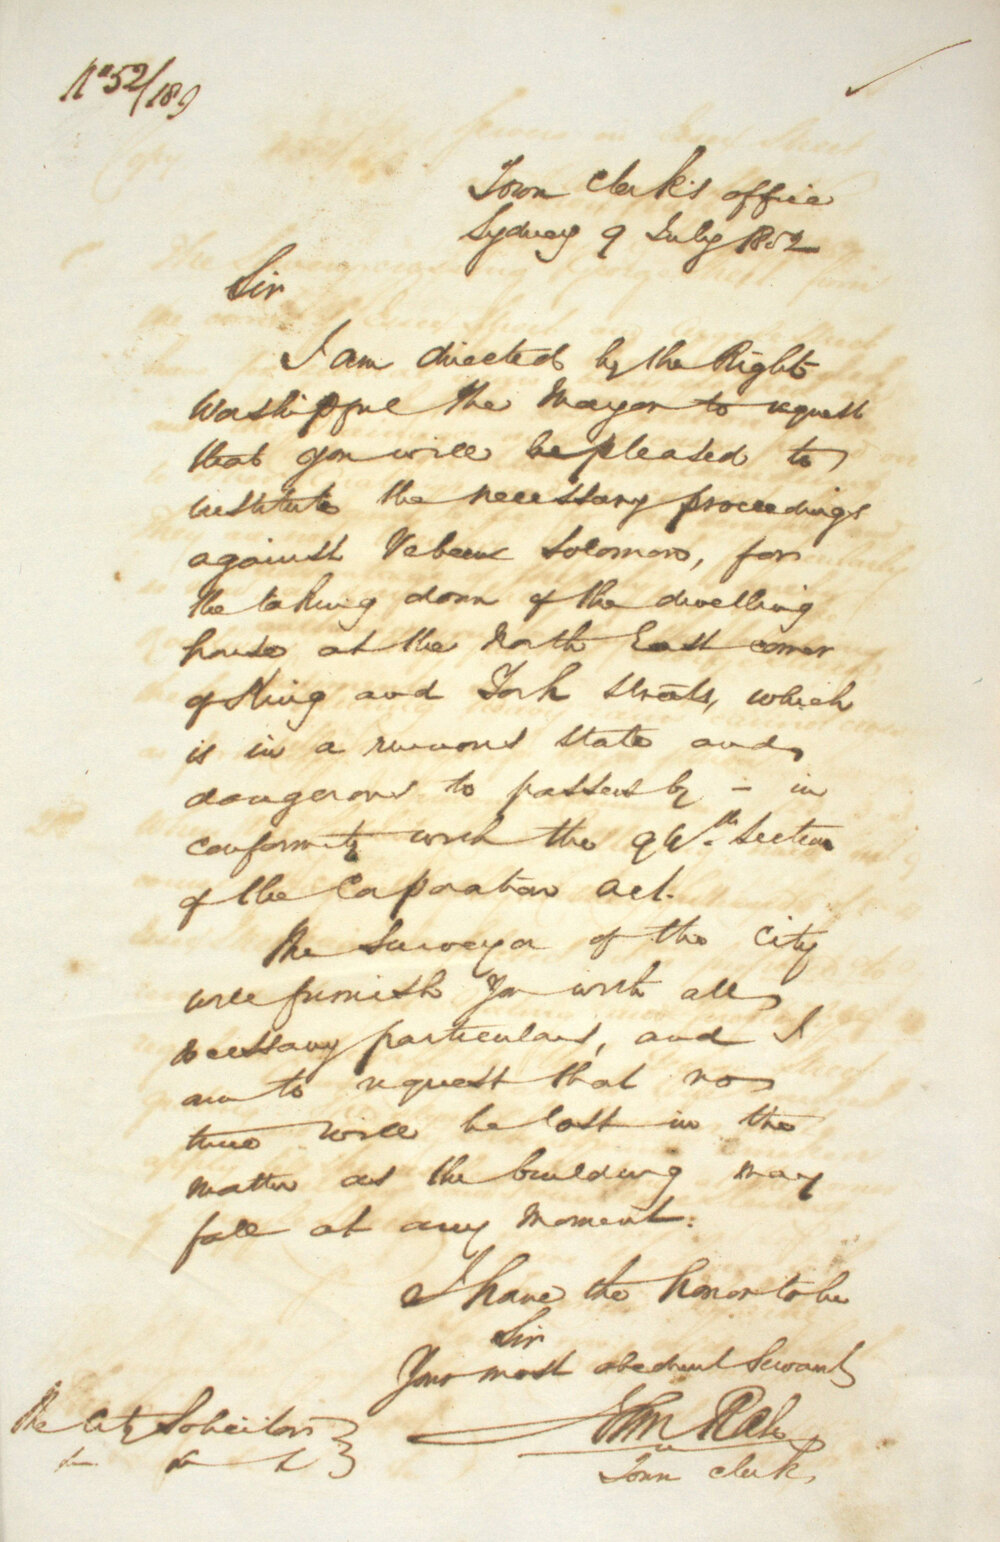 No 52/189
Town Clerk's office
Sydney 9 July 1852
Sir
I am directed by the Right
Worshipful the Mayor to request
that you will be pleased to
institute the necessary proceedings
against Solomon, for
the taking down of the dwelling
house at the North East corner
of King and York Streets, which
is in a ruinous state and
dangerous to passersby – in
conformity with the Section
of the Corporation Act.
The Surveyor of the City
will furnish you with all
necessary particulars, and I
am to request that no
time will be lost in the
matter as the building may
fall at any moment.
I have the honor to be
Sir
Your most obedient Servant
John Rae
Town Clerk
The City Solicitor